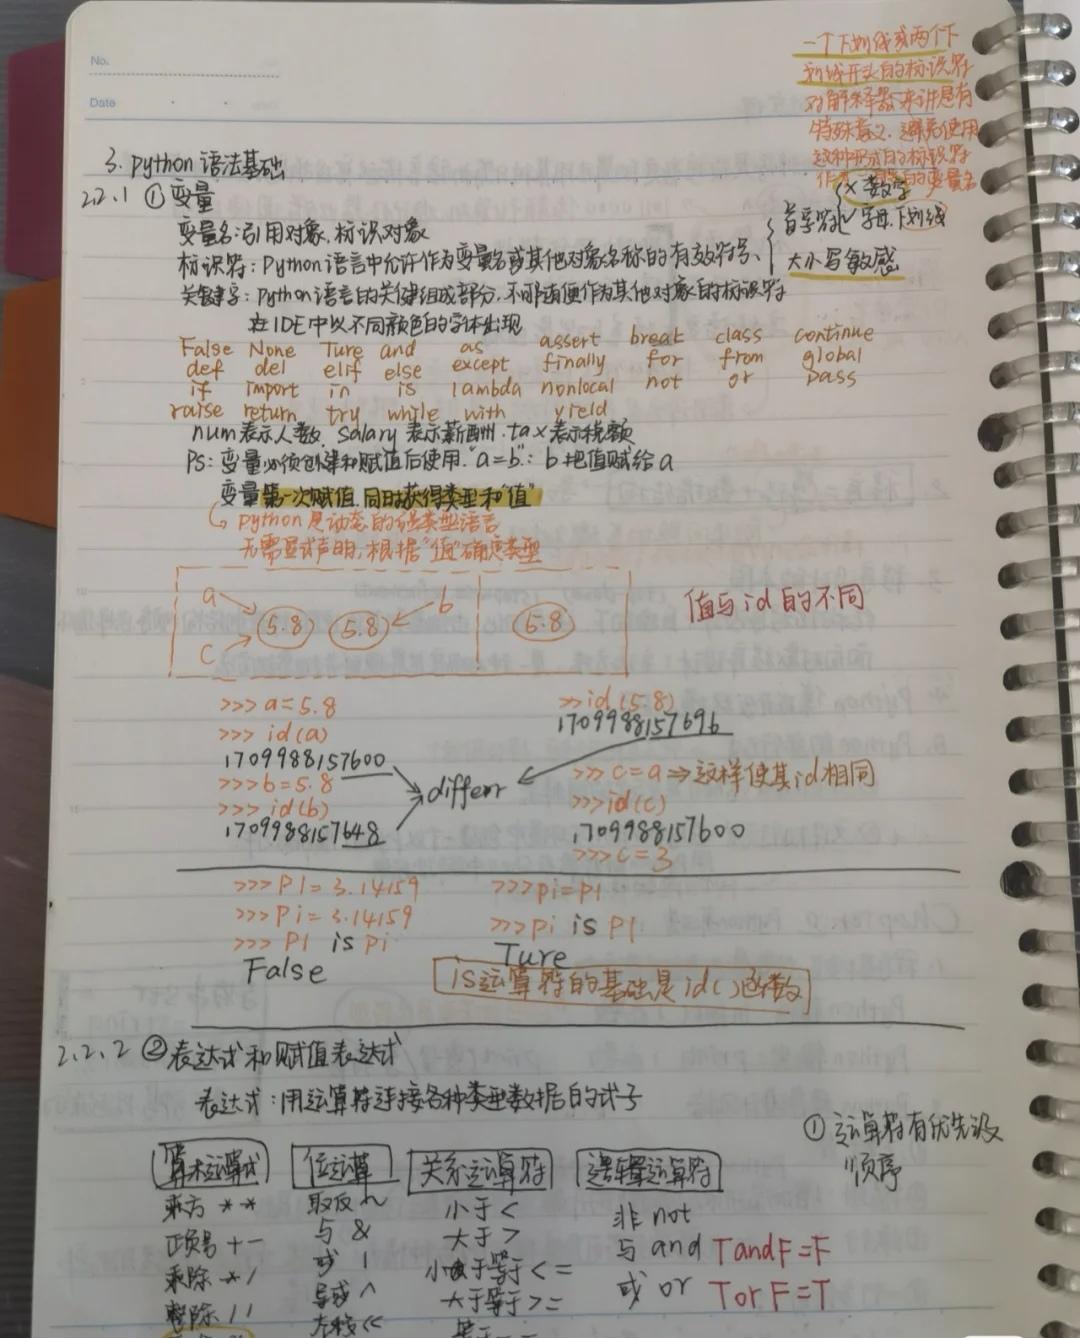 No.
Date
一个下划线或两个下
划线开头的标识符
对解释器来讲是有
特殊意义,避免使用
这种形式的标识符
作为一般的变量名
3. python 语法基础
2.2.1 ①变量
变量名:引用对象,标识对象
标识符:Python语言中允许作为变量名或其他对象名称的有效符号、
首字符 × 数字
字母、下划线
大小写敏感
关键字:python语言的关键组成部分,不可随便作为其他对象的标识符
在IDE中以不同颜色的字体出现
False None Ture and as assert break class continue
def del elif else except finally for from global
if import in is lambda nonlocal not or pass
raise return try while with yield
num表示人数, salary 表示薪酬.tax表示税额
PS: 变量必须创建和赋值后使用. "a=b": b把值赋给a
变量第一次赋值,同时获得类型和"值"
python是动态的强类型语言
无需显式声明,根据"值"确定类型
a 5.8 5.8 b 5.8
c
值与id的不同
>>> a=5.8
>>> id(a)
1709988157600
>>>b=5.8
>>> id(b)
1709988157648
differr
>>id(5.8)
1709988157696
>>> c=a⇒这样使其id相同
>>>id(c)
1709988157600
>>>c=3
>>>PI=3.14159
>>>Pi=3.14159
>>>PI is pi
False
>>>pi=PI
>>>pi is PI
Ture
is运算符的基础是id()函数
2.2.2 ②表达式和赋值表达式
表达式:用运算符连接各种类型数据的式子
①运算符有优先级
顺序
算术运算式
乘方 **
正负号 + -
乘除 * /
整除 //
位运算
取反 ~
与 &
或 |
异或 ^
左移<<
关系运算符
小于<
大于>
小于等于<=
大于等于>=
等于==
逻辑运算符
非 not
与 and TandF=F
或 or TorF=T